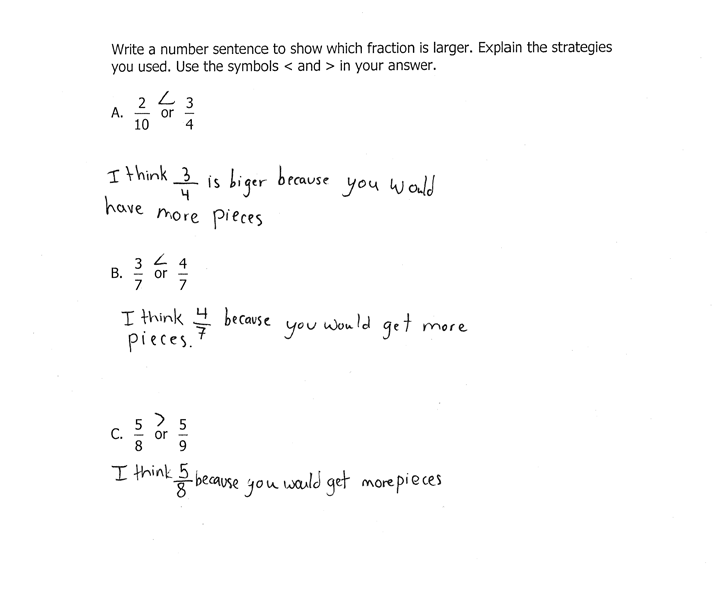 Write a number sentence to show which fraction is larger. Explain the strategies
you used. Use the symbols < and > in your answer.
A. 2/10 < or 3/4
I think 3/4 is biger because you would
have more pieces
B. 3/7 < or 4/7
I think 4/7 because you would get more
pieces.
C. 5/8 > or 5/9
I think 5/8 because you would get more pieces